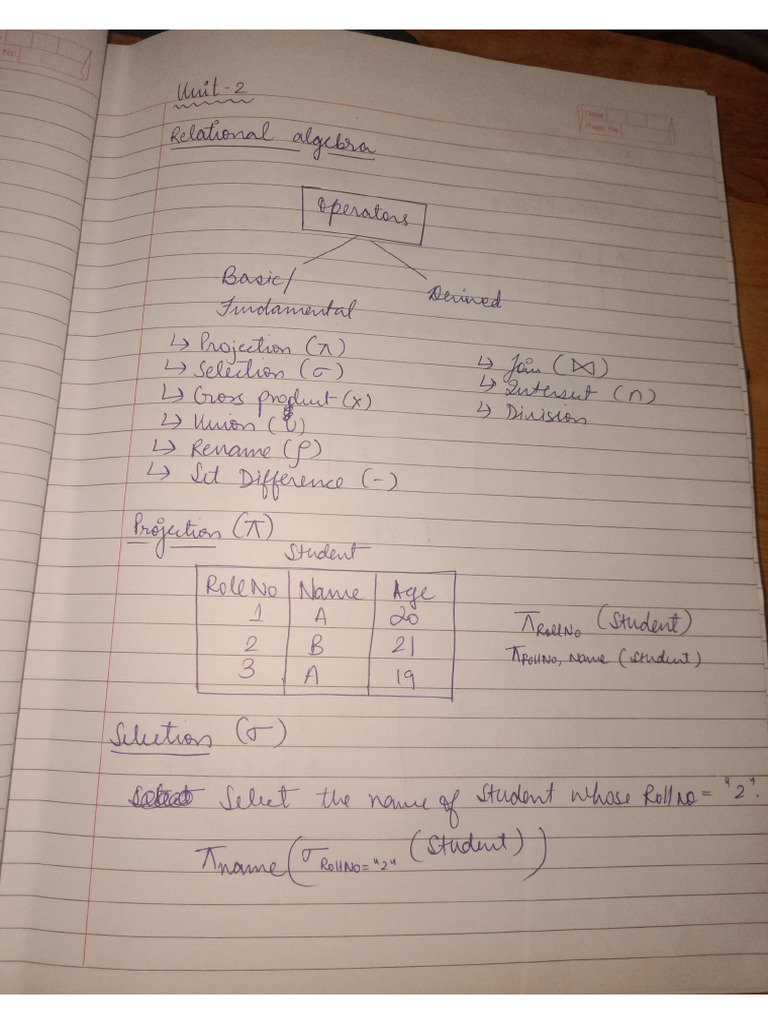 Unit-2
Relational algebra
Operators
Basic/
Fundamental
Derived
↳ Projection (π)
↳ Selection (σ)
↳ Cross product (x)
↳ Union (∪)
↳ Rename (ρ)
↳ Set Difference (-)
↳ Join (⋈)
↳ Intersect (∩)
↳ Division
Projection (π)
Student
RollNo Name Age
1 A 20
2 B 21
3 A 19
π RollNo (Student)
π RollNo, Name (Student)
Selection (σ)
Select the name of Student whose RollNo = "2".
π name (σ RollNo="2" (Student))
Date
Page No
No